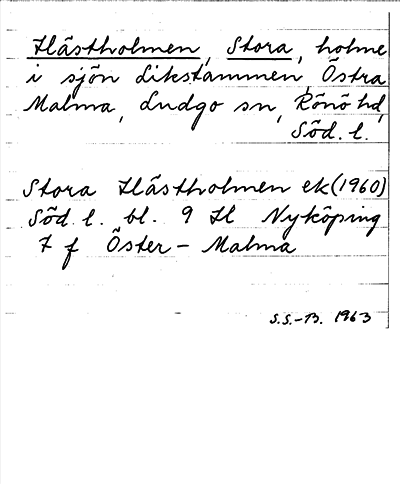 Hästholmen, Stora, holme
i sjön Likstammen, Östra
Malma, Ludgo sn, Rönö hd,
Söd. l.
Stora Hästholmen ek (1960)
Söd. l. bl. 9 H Nyköping
7 f Öster-Malma
S.S.-B. 1963